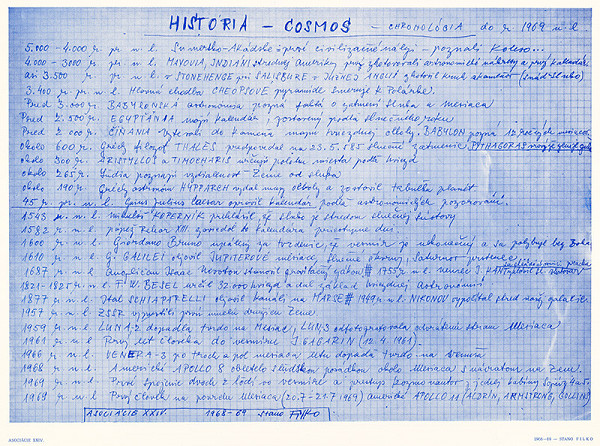 HISTORIA - COSMOS - CHRONOLÓGIA do r. 1969 n. l.
5.000 - 4.000 r. pr. n. l. Sumersko-Akádske prvé civilizačné národy - poznali Koleso...
4.000 - 3000 r. pr. n. l. MAYOVIA, INDIANI strednej Ameriky prvý zhotovovali astronomické nákresy a prvý kalendár
asi 3.500 r. pr. n. l. v STONEHENGE pri SALISBURE v Južnej ANGLII zhotovili kruh
3.400 r. pr. n. l. Hlavná chodba CHEOPSOVEJ pyramide smeruje k Polárke.
Pred 3.000 r. BABYLONSKÁ astronómia pozná fakta o zatmení Slnka a mesiaca
Pred 2.500 r. EGYPŤANIA majú kalendár, zostavený podľa slnečného roku
Pred 2.000 r. ČÍŇANIA vytesali do kameňa mapu hviezdnej oblohy. BABYLON pozná 12
okolo 600 r. Grécky filozof THALES predpovedal na 23.5.585 slnečné zatmenie. PYTHAGORAS
okolo 300 r. ARISTYLOS a TIMOCHARIS určujú polohu miesta podľa hviezd
okolo 265 r. Ľudia poznajú vzdialenosť Zeme od slnka
okolo 190 r. Grécky astronóm HYPPARCH vydal mapy oblohy a zostavil tabuľku planét
45 r. pr. n. l. Gaius Julius Caesar opravil kalendár podľa astronomických pozorovaní.
1543 n. l. Mikuláš KOPERNÍK prehlásil, že slnko je stredom slnečnej sústavy
1582 r. n. l. pápež Rehor XIII. zaviedol do kalendára priestupné dni.
1600 r. n. l. Giordano Bruno upálený za tvrdenie, že vesmír je nekonečný a sa pohybuje bez Boha
1610 r. n. l. G. GALILEI objavil JUPITEROVE mesiace, slnečné škvrny, Saturnov prstenec
1687 r. n. l. Angličan Isaac Newton stanovil gravitačný zákon # 1755 r. n. l. nemec I. KANT
1821-1825 r. n. l. F. W. BESEL určil 32.000 hviezd a dal základ hviezdnej astronómii
1877 r. n. l. Ital SCHIAPARELLI objavil kanály na MARSE # 1949 r. n. l. NIKONOV vypočítal pred našej galaxie
1957 r. n. l. ZSSR vypustili prvú umelú družicu Zeme.
1959 r. n. l. LUNA-2 dopadla tvrdo na Mesiac, LUN-3 odfotografovala odvrátenú stranu Mesiaca
1961 r. n. l. Prvý let človeka do vesmíru J. GAGARIN (12.4.1961).
1966 r. n. l. VENERA-3 po troch a pol mesiaca letu dopadá tvrdo na Venušu
1968 r. n. l. Americké APOLLO 8 obletelo s ľudskou posádkou okolo Mesiaca s návratom na Zem.
1969 r. n. l. Prvé spojenie dvoch lodí vo vesmíre a prestup kozmonautov z jednej kabíny Sojuz 4 a 5.
1969 r. n. l. Prvý človek na povrchu Mesiaca (20.7-21.7 1969) americké APOLLO 11 (ALDRIN, ARMSTRONG, COLLINS)
ASOCIÁCIE XXIV. 1968-69 Stano FILKO
ASOCIÁCIE XXIV. 1968-69 - STANO FILKO